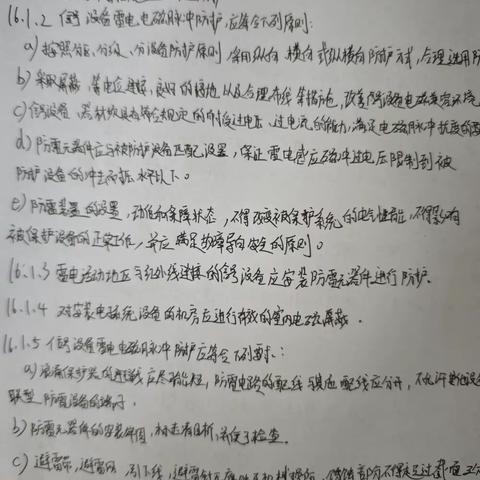 16.1.2 信号设备雷电电磁脉冲防护,应符合下列原则:
a) 按照分区、分级、分设备防护原则,采用纵向、横向或纵横向防护方式,合理选用防
b) 采取屏蔽、等电位连接、良好的接地以及合理布线等措施,改善信号设备电磁兼容环境
c) 信号设备、器材须具有符合规定的耐过电压、过电流的能力,满足电磁脉冲抗扰度的要
d) 防雷元器件应与被防护设备匹配设置,保证雷电感应电磁冲过电压限制到被
防护设备的冲击耐压水平以下。
e) 防雷装置的设置、动作和保障状态,不得改变被保护系统的电气性能,不得影响
被保护设备的正常工作,并应满足故障导向安全的原则。
16.1.3 雷电活动地区与室外线连接的信号设备应安装防雷元器件进行防护。
16.1.4 对安装电子系统设备的机房应进行有效的室内电磁屏蔽。
16.1.5 信号设备雷电电磁脉冲防护应符合下列要求:
a) 浪涌保护器的连接线应尽可能短,防雷电路的配线与其他配线应分开,不允许其他设备
防雷设备的端子。
b) 防雷元器件的安装应牢固,标志清晰,并便于检查。
c) 避雷带、避雷网、引下线、避雷针